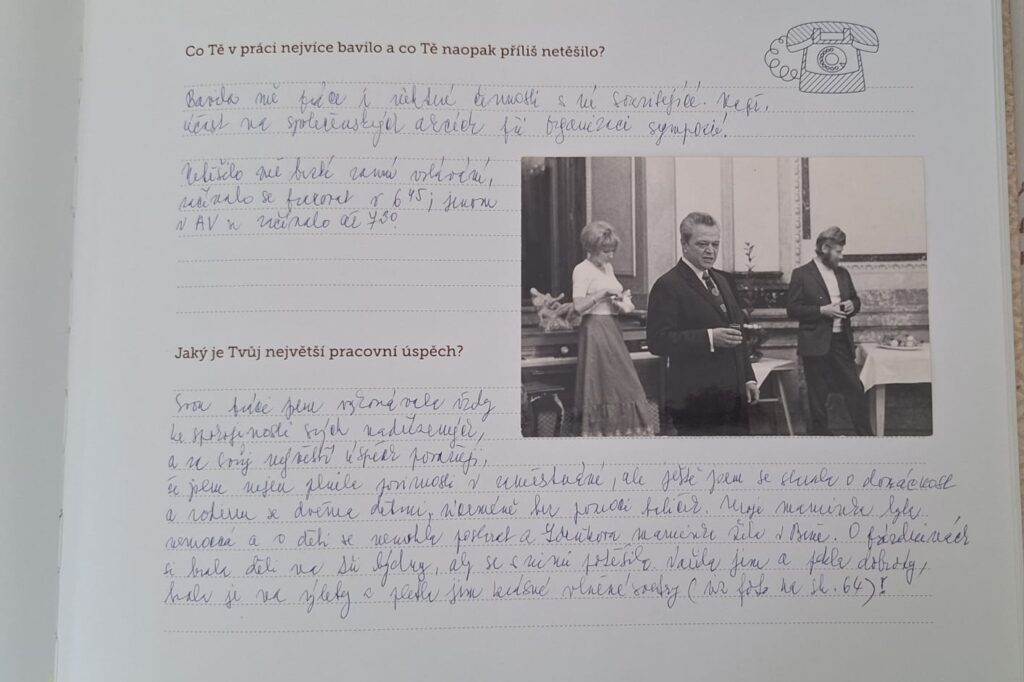 Co Tě v práci nejvíce bavilo a co Tě naopak příliš netěšilo?
Bavila mě práce i některé činnosti s ní související. Např.
účast na společenských akcích při organizaci sympozií.
Netěšilo mě brzké ranní vstávání,
začínalo se pracovat v 6 45; jinom
v AV začínalo až 7 30.
Jaký je Tvůj největší pracovní úspěch?
Svou práci jsem vykonávala vždy
ke spokojenosti svých nadřízených,
a za svůj největší úspěch považuji,
že jsem nejen plnila povinnosti v zaměstnání, ale ještě jsem se starala o domácnost
a rodinu se dvěma dětmi, víceméně bez pomoci babiček. Moje maminka byla
nemocná a o děti se nemohla postarat a Zdeňkova maminka žila v Brně. O prázdninách
si brala děti na tři týdny, aby se s nimi potěšila. Vařila jim a pekla dobroty,
brala je na výlety a pletla jim krásné vlněné svetry (viz foto na str. 64)!